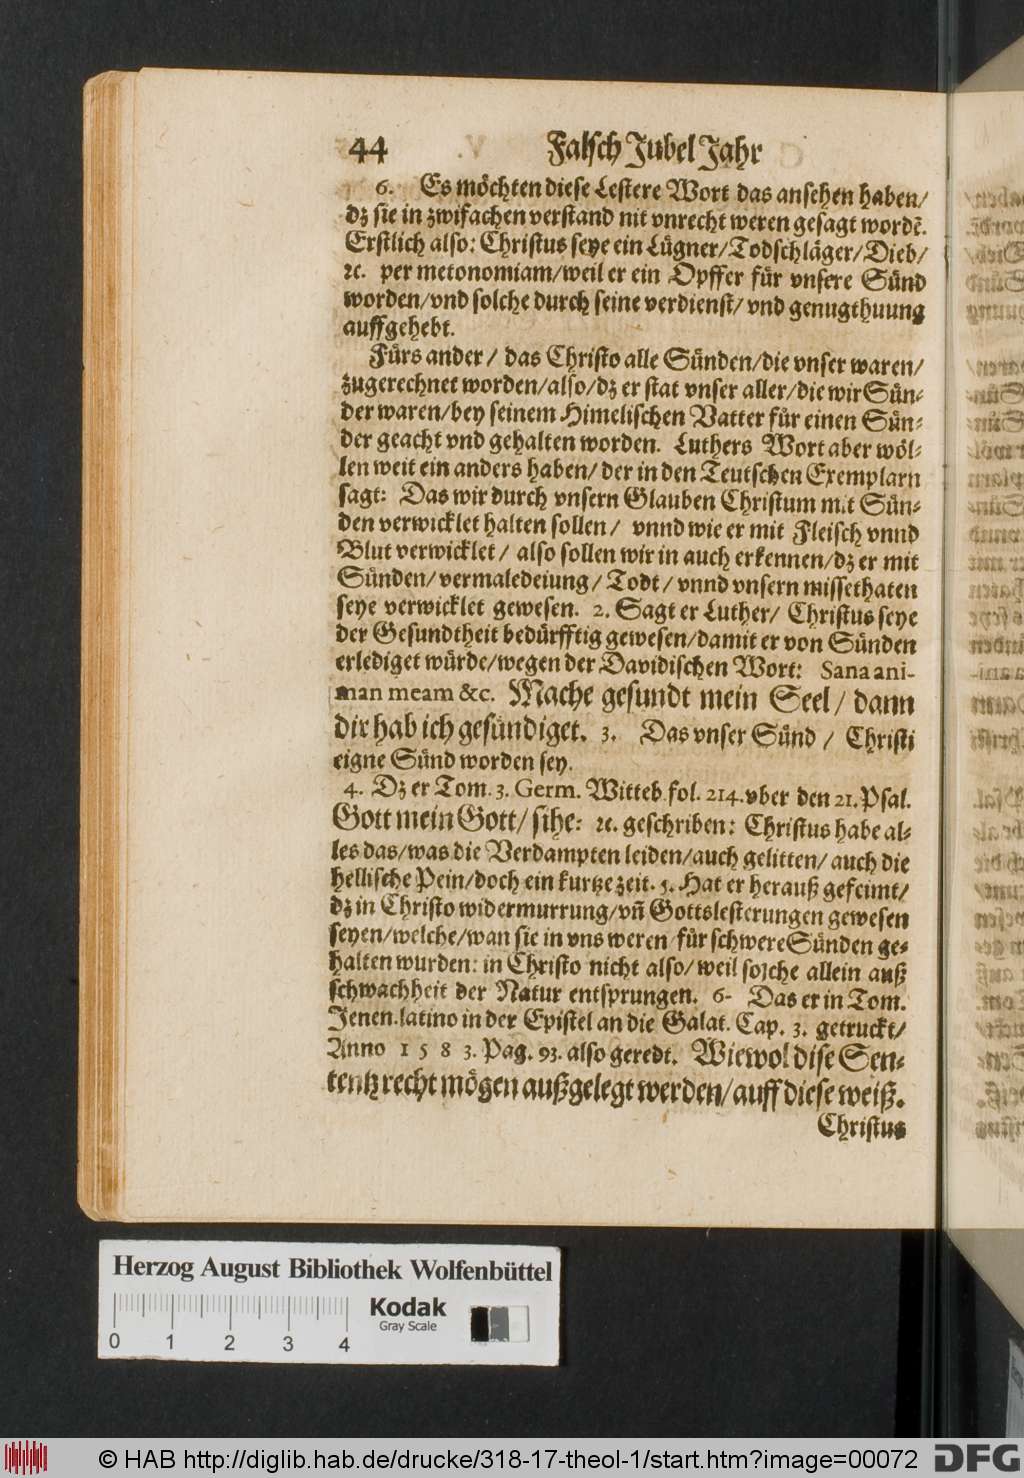 44 Falsch Jubel Jahr
6. Es möchten diese Lestere Wort das ansehen haben/
dz sie in zwifachen verstand nit vnrecht weren gesagt wordẽ.
Erstlich also: Christus seye ein Lügner/Todschläger/Dieb/
ꝛc. per metonomiam/weil er ein Opffer für vnsere Sünd
worden/vnd solche durch seine verdienst/vnd genugthuung
auffgehebt.
Fürs ander/ das Christo alle Sünden/die vnser waren/
zugerechnet worden/also/dz er stat vnser aller/die wir Sün-
der waren/bey seinem Himelischen Vatter für einen Sün-
der geacht vnd gehalten worden. Luthers Wort aber wöl-
len weit ein anders haben/ der in den Teutschen Exemplarn
sagt: Das wir durch vnsern Glauben Christum mit Sün-
den verwicklet halten sollen/ vnnd wie er mit Fleisch vnnd
Blut verwicklet/ also sollen wir in auch erkennen/dz er mit
Sünden/vermaledeiung/Todt/vnnd vnsern missethaten
seye verwicklet gewesen. 2. Sagt er Luther/ Christus seye
der Gesundtheit bedürfftig gewesen/damit er von Sünden
erlediget würde/wegen der Davidischen Wort: Sana ani-
man meam &c. Mache gesundt mein Seel/ dann
dir hab ich gesündiget. 3. Das vnser Sünd/ Christi
eigne Sünd worden sey.
4. Dz er Tom. 3. Germ. Witteb. fol. 214. vber den 21. Psal.
Gott mein Gott/ sihe: ꝛc. geschriben: Christus habe al-
les das/was die Verdampten leiden/auch gelitten/ auch die
hellische Pein/doch ein kurtze zeit. 5. Hat er herauß gefeimt/
dz in Christo widermurrung/vñ Gottslesterungen gewesen
seyen/welche/wan sie in vns weren/für schwere Sünden ge-
halten wurden: in Christo nicht also/ weil solche allein auß
schwachheit der Natur entsprungen. 6- Das er in Tom.
Jenen. latino in der Epistel an die Galat. Cap. 3. getruckt/
Anno 1583. Pag. 93. also geredt. Wiewol dise Sen-
tentz recht mögen außgelegt werden/auff diese weiß.
Christus
Herzog August Bibliothek Wolfenbüttel
0 1 2 3 4
Kodak
Gray Scale
© HAB http://diglib.hab.de/drucke/318-17-theol-1/start.htm?image=00072
DFG